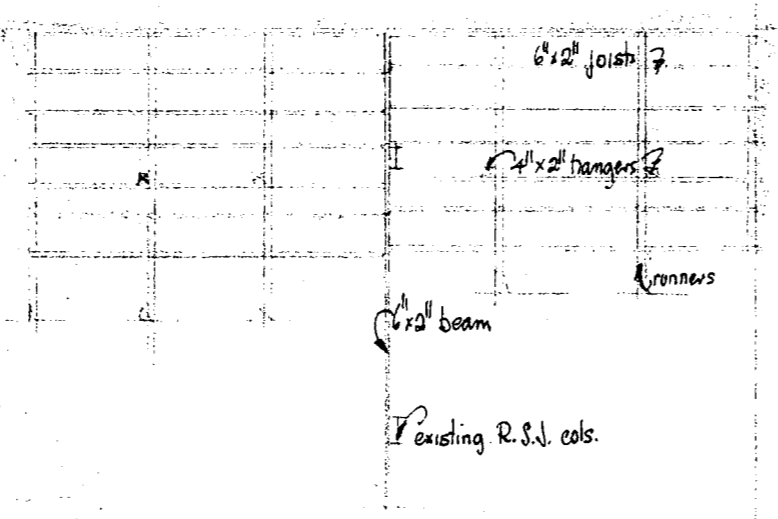 6"x2" joists
4"x2" hangers
runners
6"x2" beam
existing R.S.J. cols.